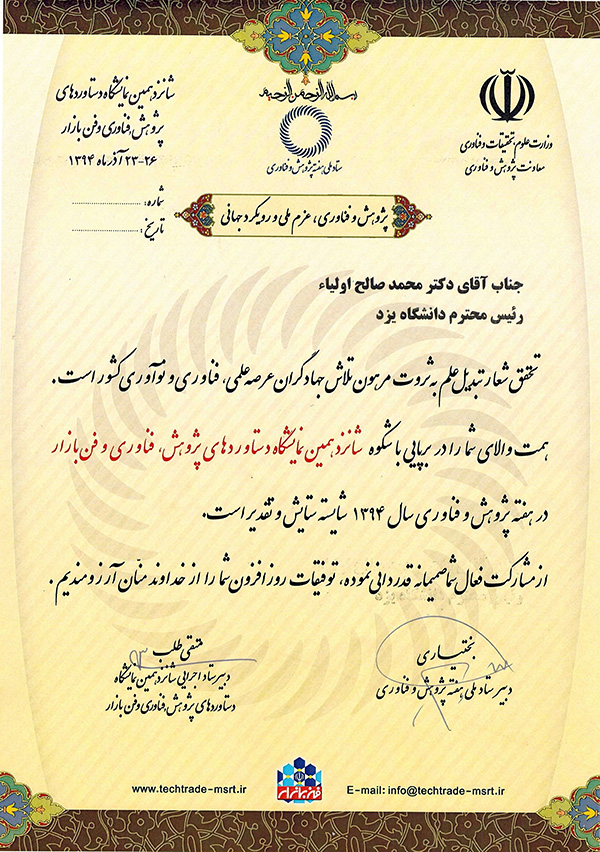 بسم الله الرحمن الرحیم
وزارت علوم، تحقیقات و فناوری
معاونت پژوهش و فناوری
ستاد ملی هفته پژوهش و فناوری
شانزدهمین نمایشگاه دستاوردهای
پژوهش، فناوری و فن بازار
۲۳-۲۶ آذر ماه ۱۳۹۴
شماره:
تاریخ:
پژوهش و فناوری، عزم ملی و رویکرد جهانی
جناب آقای دکتر محمد صالح اولیاء
رئیس محترم دانشگاه یزد
تحقق شعار تبدیل علم به ثروت مرهون تلاش جهادگران عرصه علمی، فناوری و نوآوری کشور است.
همت والای شما را در برپایی با شکوه شانزدهمین نمایشگاه دستاوردهای پژوهش، فناوری و فن بازار
در هفته پژوهش و فناوری سال ۱۳۹۴ شایسته ستایش و تقدیر است.
از مشارکت فعال شما صمیمانه قدردانی نموده، توفیقات روز افزون شما را از خداوند منان آرزومندیم.
بختیاری
دبیر ستاد ملی هفته پژوهش و فناوری
متقی طلب
دبیر ستاد اجرایی شانزدهمین نمایشگاه
دستاوردهای پژوهش، فناوری و فن بازار
www.techtrade-msrt.ir
E-mail: info@techtrade-msrt.ir